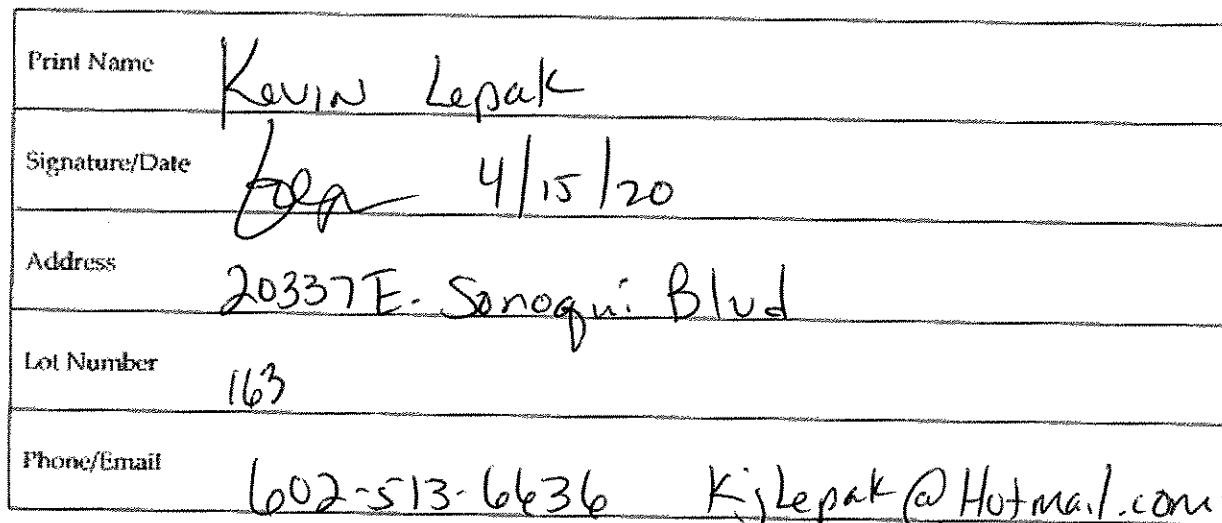 Print Name Kevin Lepak
Signature/Date 4/15/20
Address 20337 E. Sonoqui Blvd
Lot Number 163
Phone/Email 602-513-6636 KjLepak@Hotmail.com